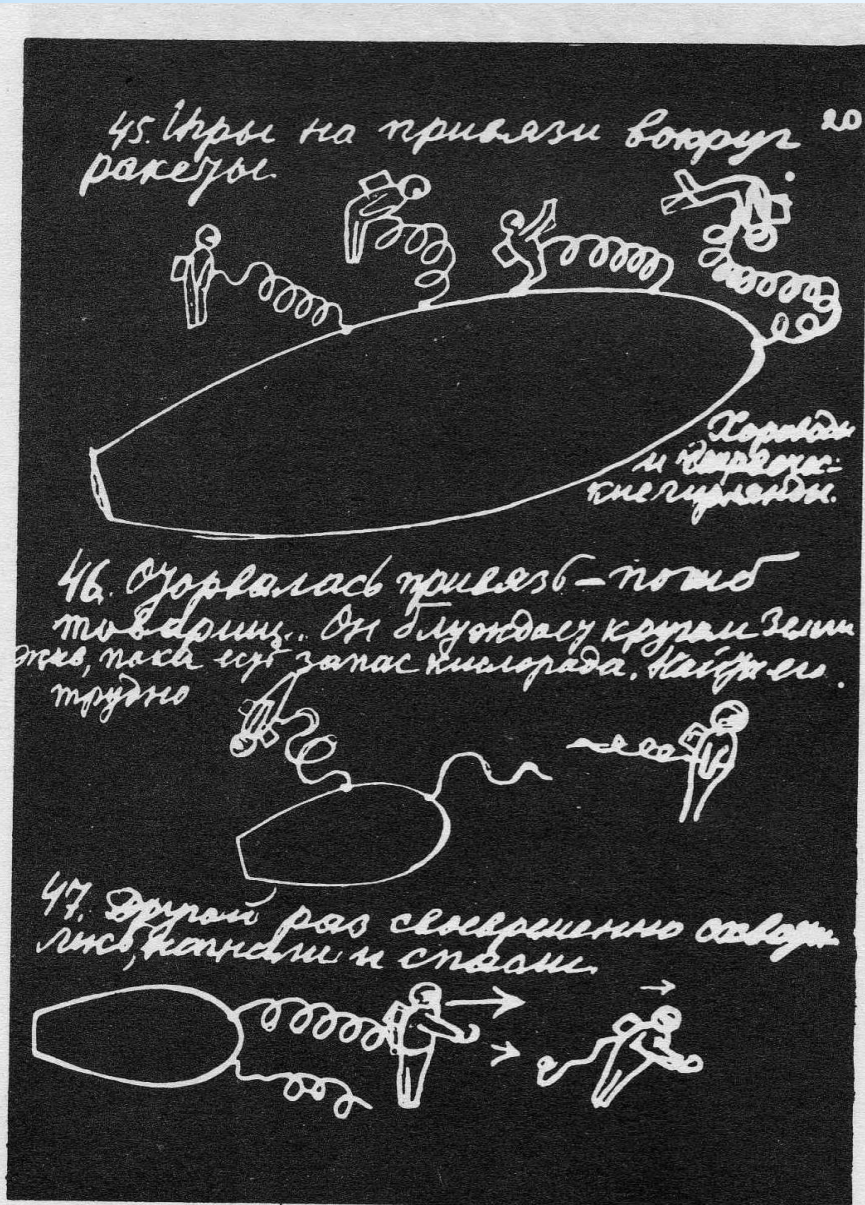 20
45. Игры на привязи вокруг
ракеты.
Хороводы
и
гирлянды.
46. Оторвалась привязь – погиб
товарищ.. Он блуждает кругом Земли
жив, пока есть запас кислорода. Найти его
трудно
47. Другой раз своевременно схвати
лись, нагнали и спасли.